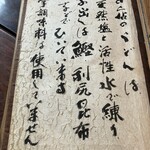 当店のうどんは
天然塩と活性水で練り
だしは鰹利尻昆布
でひいています
化学調味料は使用していません